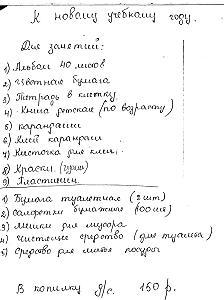 К новому учебному году.
Для занятий:
1) Альбом 40 листов
2) Цветная бумага
3) Тетрадь в клетку
4) Книга детская (по возрасту)
5) карандаши
6) Клей карандаш
7) Кисточка для клея
8) Краски. (гуашь)
9) Пластилин.
1) Бумага туалетная (2 шт)
2) Салфетки бумажные (100 шт)
3) Мешки для мусора
4) Чистящее средство (для туалета)
5) Средство для мытья посуды
В копилку д/с. 150 р.